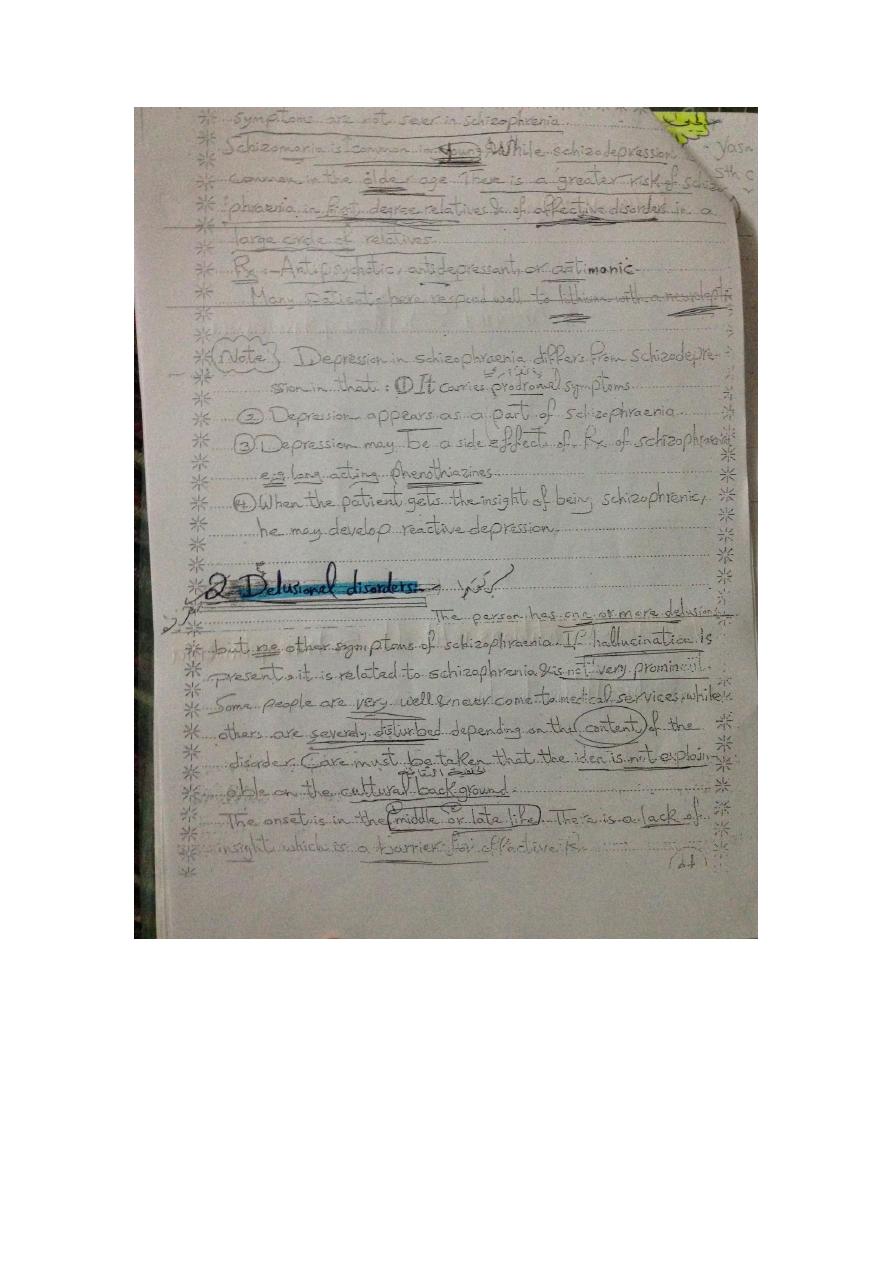 symptoms are not sever in schizophrenia
Schizomania is common in young while schizodepression
common in the older age. There is a greater risk of schizo
phraenia in first degree relatives & of affective disorders in a
large circle of relatives.
Rx:- Antipsychotic, antidepressant, or antimanic.
Many patients here respond well to lithium with a neurolepti
Note Depression in schizophraenia differs from schizodepre-
ssion in that: ① It carries prodromal symptoms.
② Depression appears as a part of schizophraenia.
③ Depression may be a side effects of Rx of schizophraenia
e.g long acting phenothiazines.
④ When the patient gets the insight of being schizophrenic,
he may develop reactive depression.
2 Delusional disorders:-
The person has one or more delusions
but no other symptoms of schizophraenia. If hallucination is
present, it is related to schizophrenia & is not very prominent.
Some people are very well & never come to medical services, while
others are severely disturbed depending on the content of the
disorder. Care must be taken that the idea is not explain-
able on the cultural background.
The onset is in the middle or late life. There is a lack of
insight which is a barrier for effective Rx.